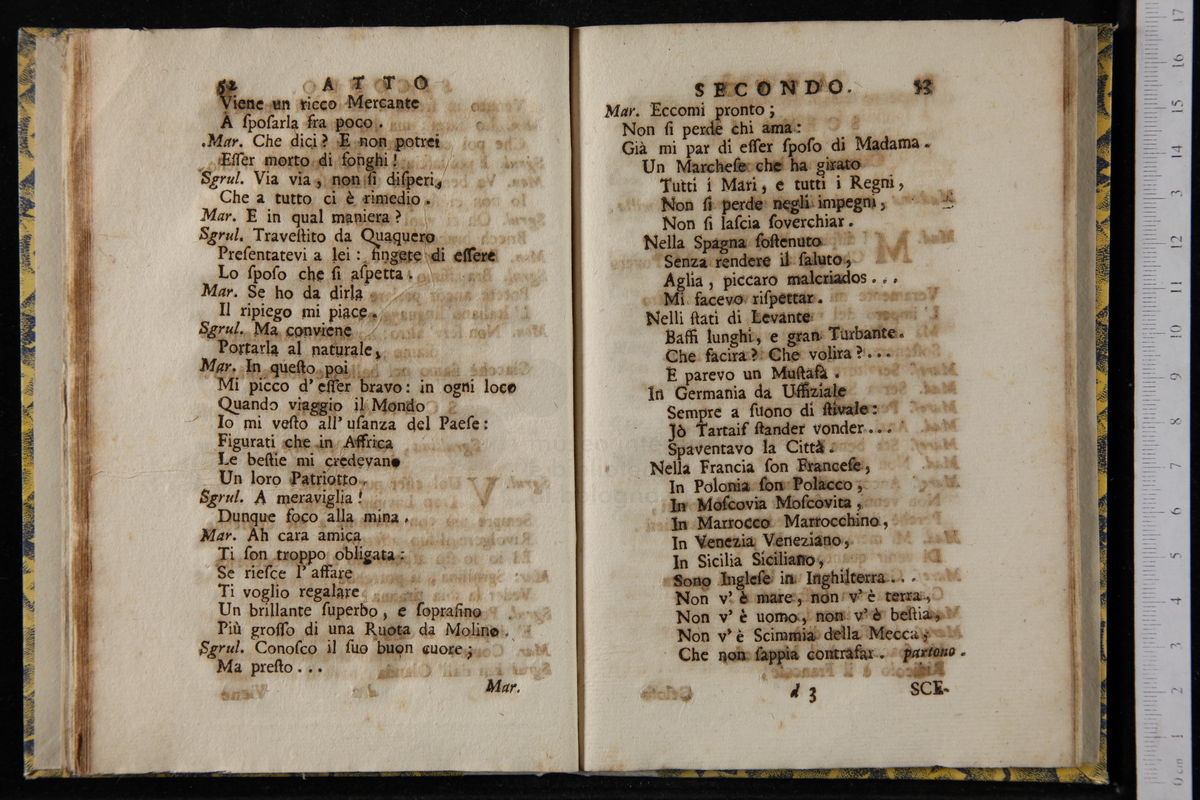 52 ATTO
Viene un ricco Mercante
A ſpoſarla fra poco.
Mar. Che dici? E non potrei
Eſſer morto di fonghi!
Sgrul. Via via, non ſi diſperi,
Che a tutto ci è rimedio.
Mar. E in qual maniera?
Sgrul. Traveſtito da Quaquero
Preſentatevi a lei: fingete di eſſere
Lo ſpoſo che ſi aſpetta.
Mar. Se ho da dirla
Il ripiego mi piace.
Sgrul. Ma conviene
Portarla al naturale,
Mar. In queſto poi
Mi picco d'eſſer bravo: in ogni loco
Quando viaggio il Mondo
Io mi veſto all'uſanza del Paeſe:
Figurati che in Affrica
Le beſtie mi credevano
Un loro Patriotto.
Sgrul. A meraviglia!
Dunque foco alla mina.
Mar. Ah cara amica
Ti ſon troppo obligata:
Se rieſce l'affare
Ti voglio regalare
Un brillante ſuperbo, e ſoprafino
Più groſſo di una Ruota da Molino.
Sgrul. Conoſco il ſuo buon cuore;
Ma preſto...
Mar.
SECONDO. 53
Mar. Eccomi pronto;
Non ſi perde chi ama:
Già mi par di eſſer ſpoſo di Madama.
Un Marcheſe che ha girato
Tutti i Mari, e tutti i Regni,
Non ſi perde negli impegni,
Non ſi laſcia ſoverchiar.
Nella Spagna ſoſtenuto
Senza rendere il ſaluto,
Aglia, piccaro malcriados...
Mi facevo riſpettar.
Nelli ſtati di Levante
Baffi lunghi, e gran Turbante.
Che facira? Che volira?...
E parevo un Muſtafà.
In Germania da Uffiziale
Sempre a ſuono di ſtivale:
Jò Tartaif ſtander vonder...
Spaventavo la Città.
Nella Francia ſon Franceſe,
In Polonia ſon Polacco,
In Moſcovia Moſcovita,
In Marrocco Marrocchino,
In Venezia Veneziano,
In Sicilia Siciliano,
Sono Ingleſe in Inghilterra...
Non v'è mare, non v'è terra,
Non v'è uomo, non v'è beſtia,
Non v'è Scimmia della Mecca,
Che non ſappia contrafar. partono.
d 3 SCE-